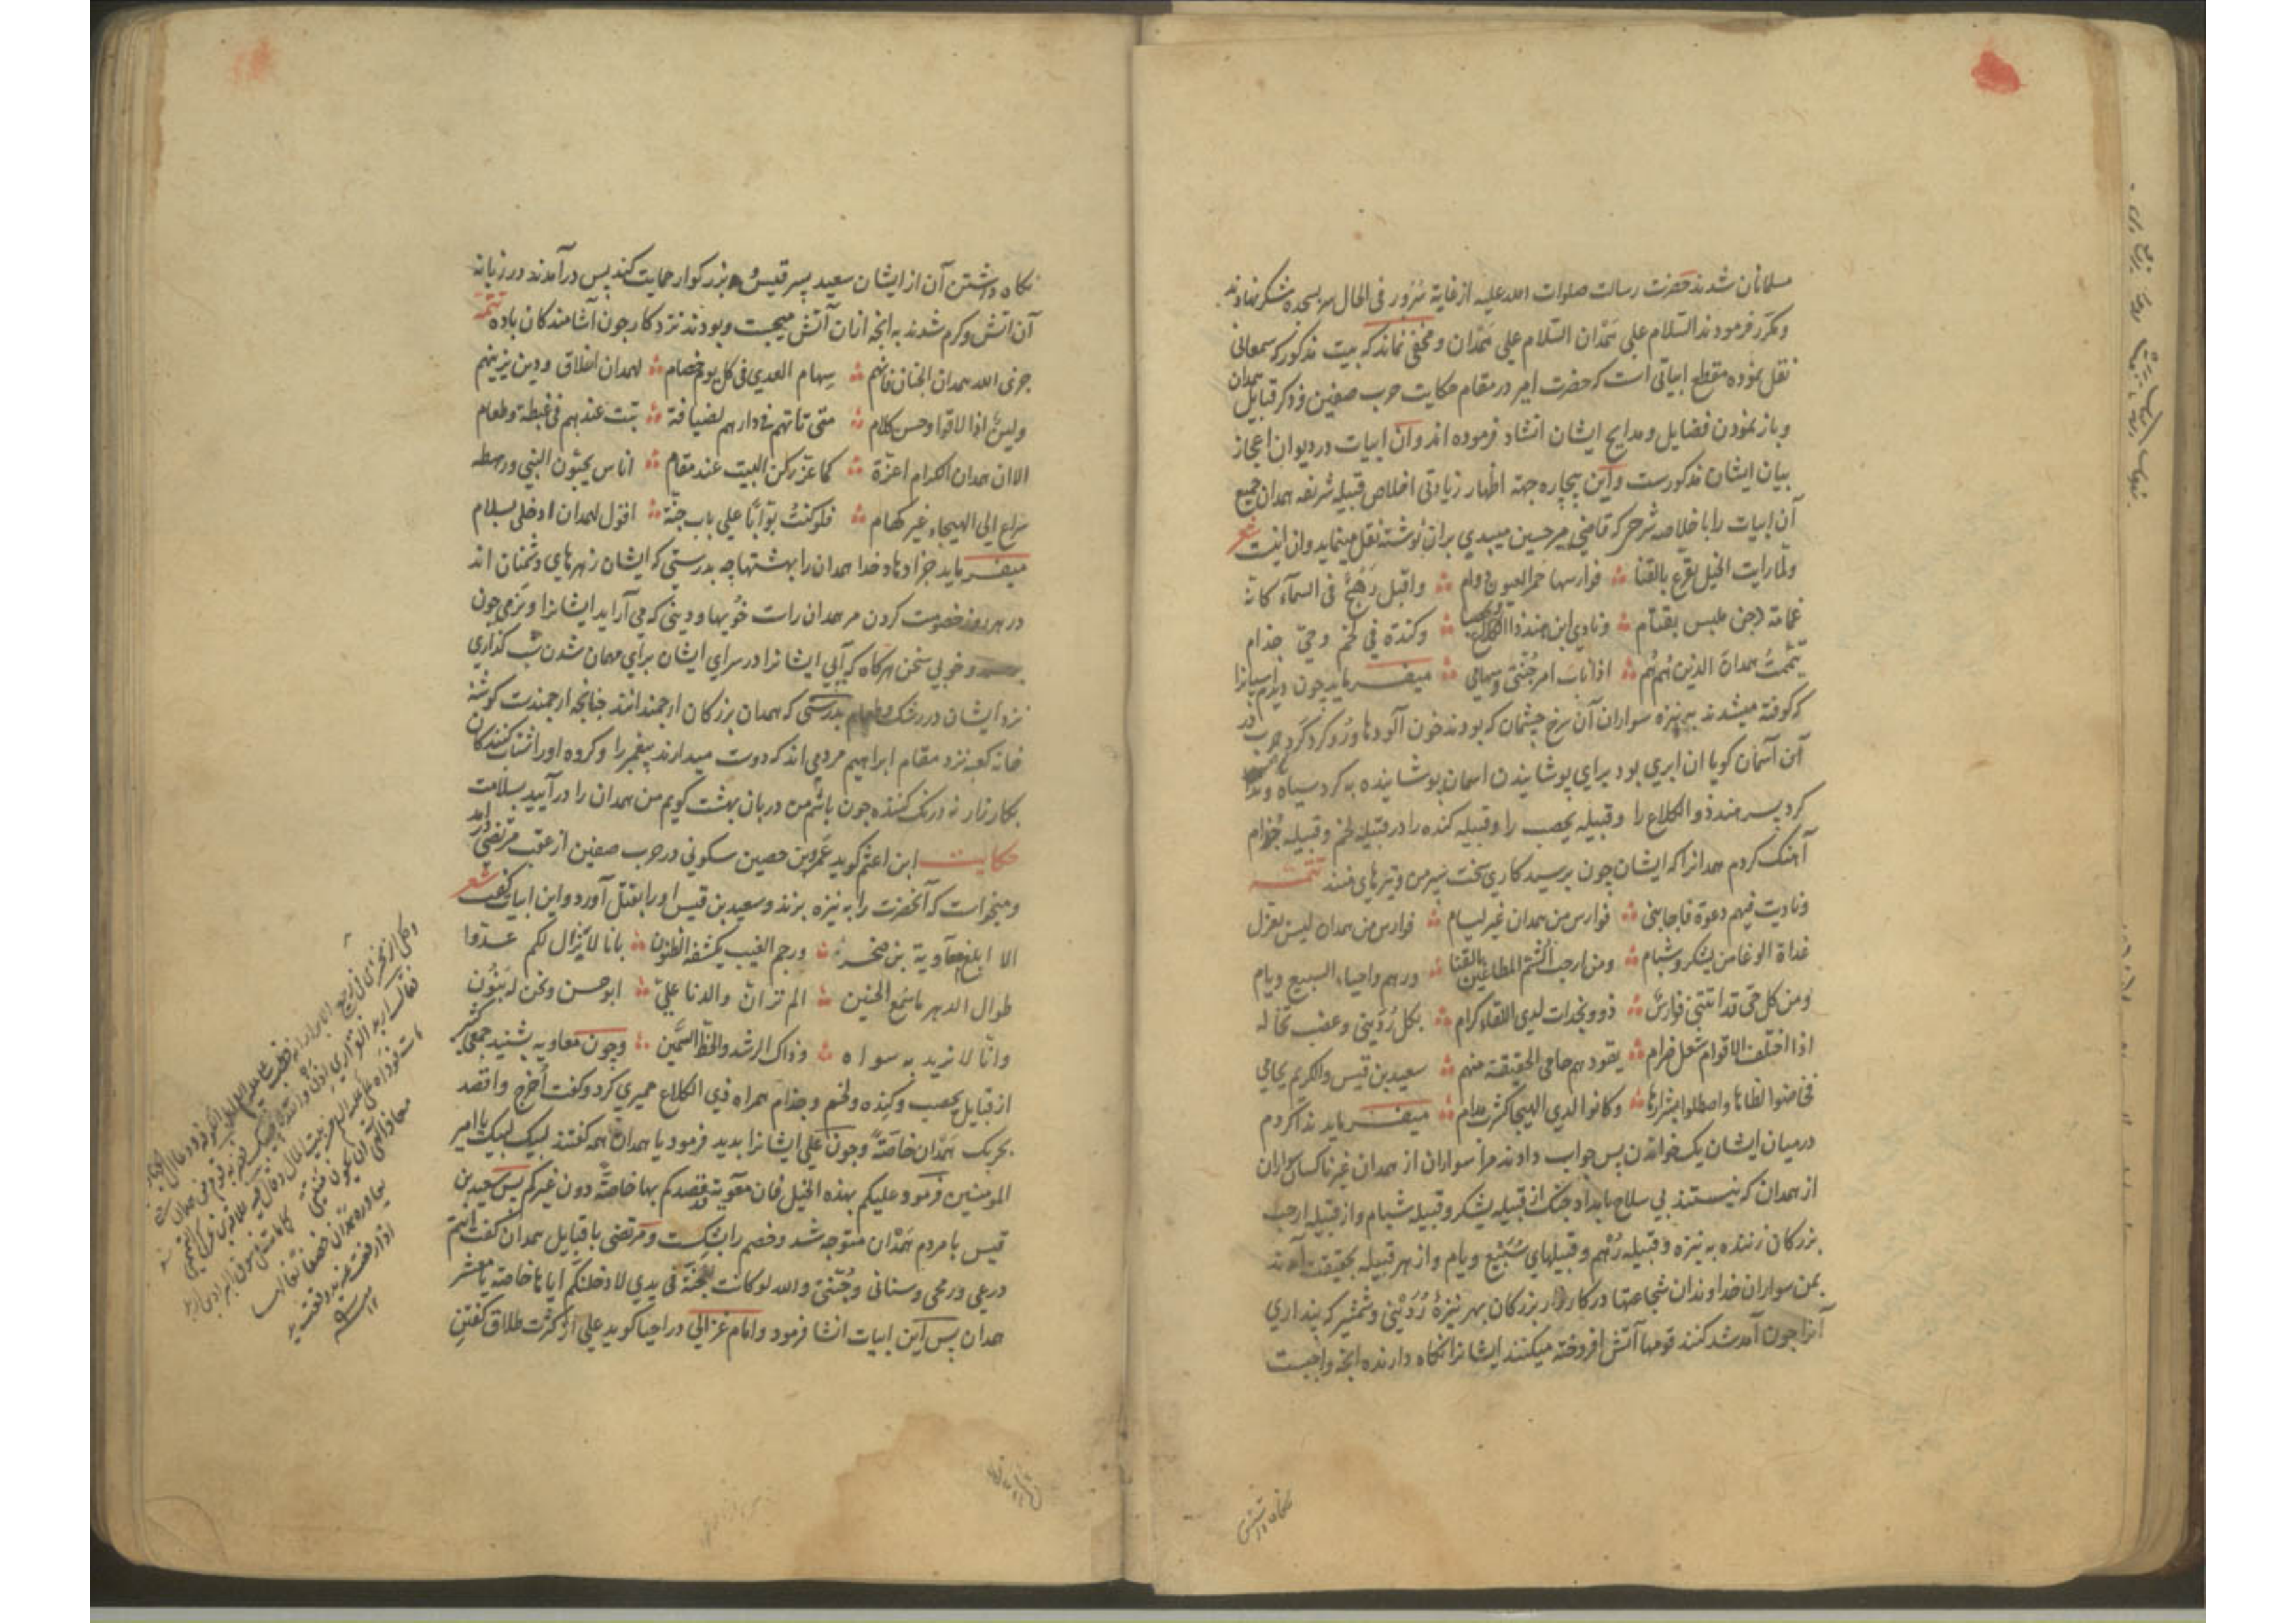 مسلمانان شدند حضرت رسالت صلوات الله علیه از غایة سُرور فی الحال سر بسجده شکر نهادند
و مکرّر فرمودند السّلام علی هَمْدان السّلام علی هَمْدان و مخفی نماند که بیت مذکور که سمعانی
نقل نموده مقطع ابیاتی است که حضرت امیر در مقام حکایت حرب صفین و ذکر قبایل همدان
و باز نمودن فضایل و مدایح ایشان انشاد فرموده اند و آن ابیات در دیوان اعجاز
بیان ایشان مذکورست و این بیچاره جهة اظهار زیادتی اخلاص قبیله شریفه همدان جمیع
آن ابیات را با خلاصه شرحی که قاضی میر حسین میبدی بران نوشته نقل مینماید و ان اینست شعر
ولمّا رایت الخیل تقرع بالقنا فوارسها حمر العیون دوام واقبل رَهَجٌ فی السمآء کانه
غمامة دجن ملبس بقتام و نادی ابن هند ذا الکلاع و یحصبا وکندة فی لخم وحیّ جذام
تیمّمتُ همدان الذین هُمُ هُمُ اذا ناب امر جُنّتی وسهامی میفرماید چون دیدم اسبانرا
که کوفته میشدند به نیزه سواران آن سرخ چشمان که بودند خون آلودها و رو کرد گرد حرب در
آن آسمان کویا ان ابری بود برای پوشانیدن اسمان پوشانیده به کرد سیاه و ندا
کرد پسر هند ذوالکلاع را و قبیله یحصب را و قبیله کنده را در قبیله لخم و قبیله جُذام
آهنک کردم همدانرا که ایشان چون برسید کاری سخت سپر من و تیرهای منند تتمّه
ونادیت فیهم دعوة فاجابنی فوارس من همدان غیر لیام فوارس من همدان لیس بعزل
غداة الوغا من یشکر وشبام ومن ارحب الشّم المطاعین بالقنا ورهم واحیاء السبیع ویام
ومن کل حیّ قد اتتنی فوارسٌ ذوو نجدات لدی اللقاء کرام بکل رُدَینی وعضب تخاله
اذا اختلف الاقوام شعل ضرام یقودهم حامی الحقیقة منهم سعید بن قیس والکریم یحامی
فخاضوا لظاها واصطلوا بشرارها وکانوا لدی الهیجا کشرب مدام میفرماید ندا کردم
درمیان ایشان یک خواندن پس جواب دادند مرا سواران از همدان غیر ناکسان سواران
از همدان که نیستند بی سلاح بامداد جنک از قبیله یشکر و قبیله شبام و از قبیله ارحب
بزرکان زننده به نیزه و قبیله رُهم و قبیلهای سُبَیْع و یام و از هر قبیله بحقیقت آمدند
بمن سواران خداوندان شجاعتها در کارزار بزرکان بهر نیزهٔ رُدَیْنی و شمشیر که پنداری
آنرا چون آمد شد کنند قومها آتش افروخته میکنند ایشانرا نکاه دارنده انچه واجبست
نکاه داشتن
نکاه داشتن آن از ایشان سعید پسر قیس و بزرکوار حمایت کند پس درآمدند در زبانه
آن آتش و کرم شدند به انچه ازان آتش میجست و بودند نزد کارزار چون آشامندکان باده تتمّه
جزی الله همدان الجنان فانّهم سهام العدی فی کل یوم خصام لهمدان اخلاق ودین یزینهم
ولینٌ اذا لاقوا وحسن کلام متی تاتهم فی دارهم لضیافة تبت عندهم فی غبطة وطعام
الا ان همدان الکرام اعزّة کما عزّ رکن البیت عند مقام اناس یحبّون النبی ورهطه
سراع الی الهیجاء غیر کهام فلو کنتُ بوّابًا علی باب جنّة اقول لهمدان ادخلی بسلام
میفرماید جزا دهاد خدا همدان را بهشتها چه بدرستی که ایشان زهرهای دشمنان اند
در هر روز خصومت کردن مر همدان راست خُویها و دینی که می آراید ایشانرا و نرمی چون
و خوبی سخن هرکاه که آیی ایشانرا در سرای ایشان برای مهمان شدن شب کذاری
نزد ایشان در رشک و طعام بدرستی که همدان بزرکان ارجمندانند چنانچه ارجمندست کوشهٔ
خانه کعبه نزد مقام ابراهیم مردمی اند که دوست میدارند پیغمبر را و کروه او را شتاب کنندکان
بکارزار نه درنک کننده چون باشم من دربان بهشت کویم من همدان را درآیید بسلامت
حکایت ابن اعثم کوید عَمرو بن حصین سکونی در حرب صفین از عقب مرتضی درآمد
و میخواست که آنحضرت را به نیزه بزند و سعید بن قیس او را بقتل آورد و این ابیات کفت شعر
الا ابلغ معاویة بن صخر ورجم الغیب یکشفه الظنونا بانا لا یَزال لکم عدوّا
طوال الدهر ما سُمع الحنین الم تر ان والدنا علیّ ابو حسن ونحن له بَنُون
وانّا لا نرید به سواه وذاک الرشد والحظّ السَّمین و چون معاویه بشنید جمعی کثیر
از قبایل یحصب و کنده و لخم و جذام همراه ذی الکلاع حمیری کرد و کفت اُخرج واقصد
بحربک هَمْدان خاصّةً و چون علی ایشانرا بدید فرمود یا همدان همه کفتند لبیک لبیک یا امیر
المومنین فرمود علیکم بهذه الخیل فان معویة قصدکم بها خاصّة دون غیرکم پس سعید بن
قیس با مردم هَمْدان متوجه شد و خصم را بشکست و مرتضی با قبایل همدان کفت انتم
درعی ورمحی وسنانی وجُنّتی والله لو کانت الجنة فی یدی لادخلنکم ایاها خاصّة یا معشر
همدان پس این ابیات انشا فرمود و امام غزالی در احیا کوید علی از کثرت طلاق کفتن